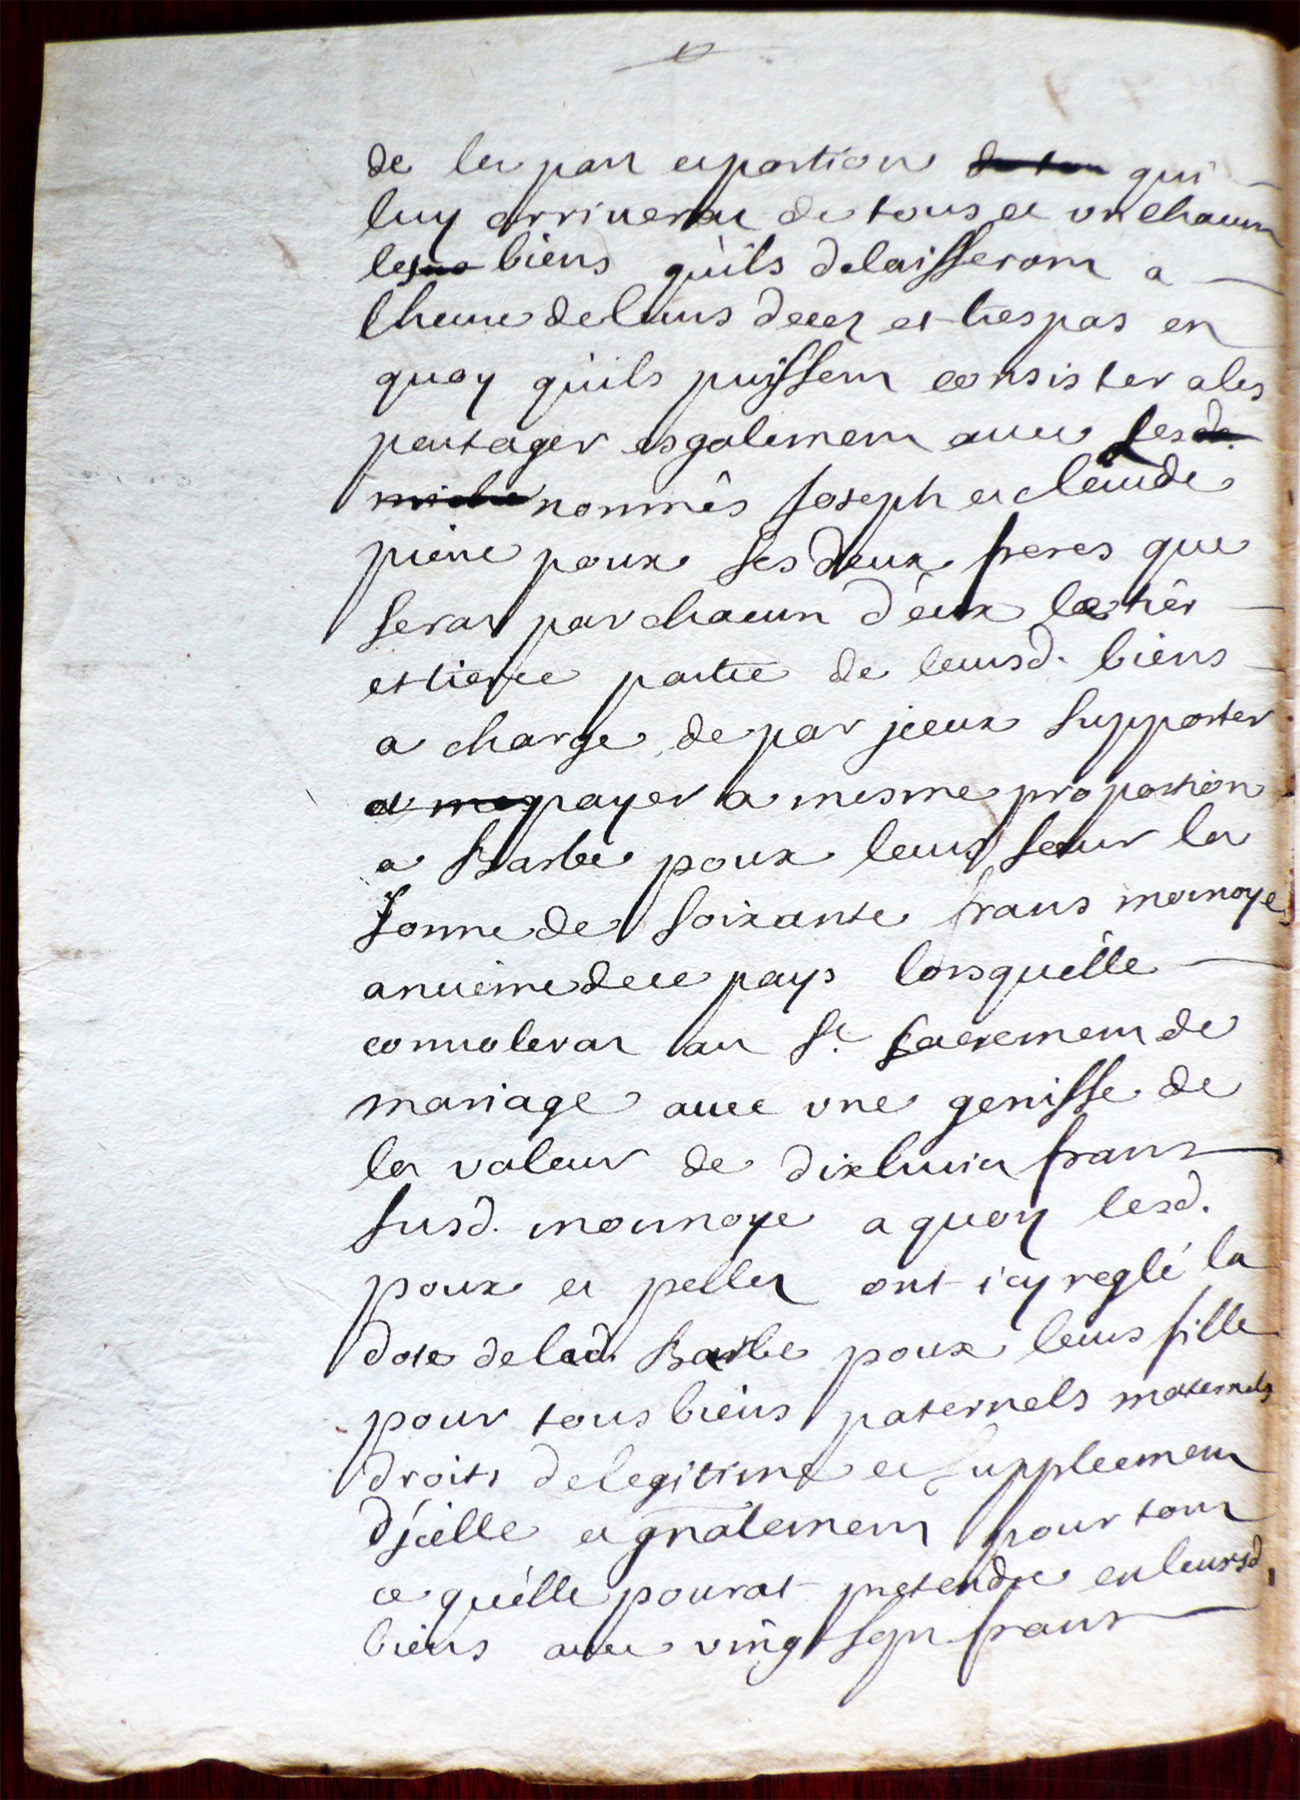 de la part et portion qui
luy arriverat de tous et un chacun
les biens qu'ils delaisseront a
lheure de leurs deces et trespas en
quoy qu'ils puissent consister a les
partager esgalement avec les
nommés Joseph et claude
pierre poux ses deux freres que
serat par chacun d'eux le tier
et tierce partie de leursd. biens
a charge de par jceux supporter
payer a mesme proportion
a Barbe poux leur soeur la
somme de soixante frans monoye
ancienne de ce pays lorsqu'elle
convolerat au St. sacrement de
mariage avec une genisse de
la valeur de dixhuict frans
susd. monnoye a quoy lesd.
poux et pellet ont icy reglé la
dote de lad. Barbe poux leur fille
pour tous biens paternels maternels
droits de legitime et suppleement
d'jcelle et gnalement pour tout
ce qu'elle pourat pretendre en leursd.
biens avec vingt sept frans